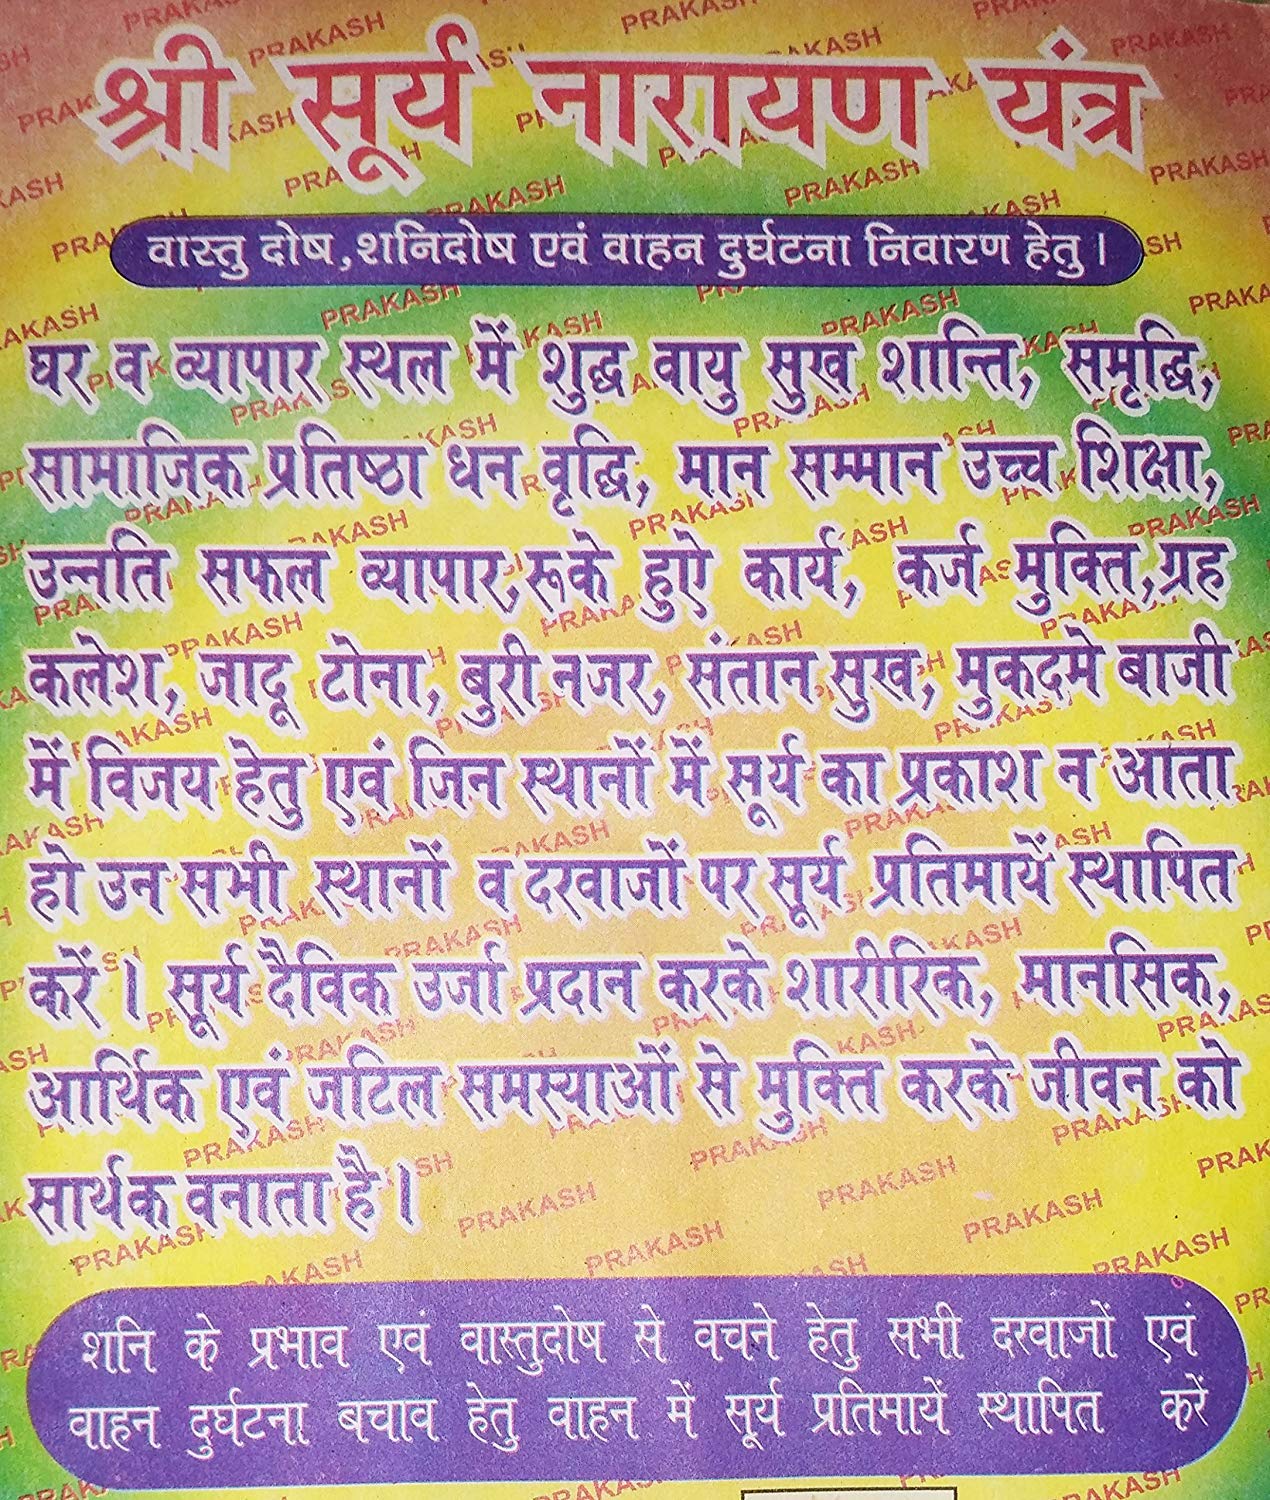 श्री सूर्य नारायण यंत्र
वास्तु दोष,शनिदोष एवं वाहन दुर्घटना निवारण हेतु।
घर व व्यापार स्थल में शुद्ध वायु सुख शान्ति, समृद्धि,
सामाजिक प्रतिष्ठा धन वृद्धि, मान सम्मान उच्च शिक्षा,
उन्नति सफल व्यापार,रूके हुऐ कार्य, कर्ज मुक्ति,ग्रह
कलेश, जादू टोना, बुरी नजर, संतान सुख, मुकदमे बाजी
में विजय हेतु एवं जिन स्थानों में सूर्य का प्रकाश न आता
हो उन सभी स्थानों व दरवाजों पर सूर्य प्रतिमायें स्थापित
करें। सूर्य दैविक उर्जा प्रदान करके शारीरिक, मानसिक,
आर्थिक एवं जटिल समस्याओं से मुक्ति करके जीवन को
सार्थक वनाता है।
शनि के प्रभाव एवं वास्तुदोष से वचने हेतु सभी दरवाजों एवं
वाहन दुर्घटना बचाव हेतु वाहन में सूर्य प्रतिमायें स्थापित करें